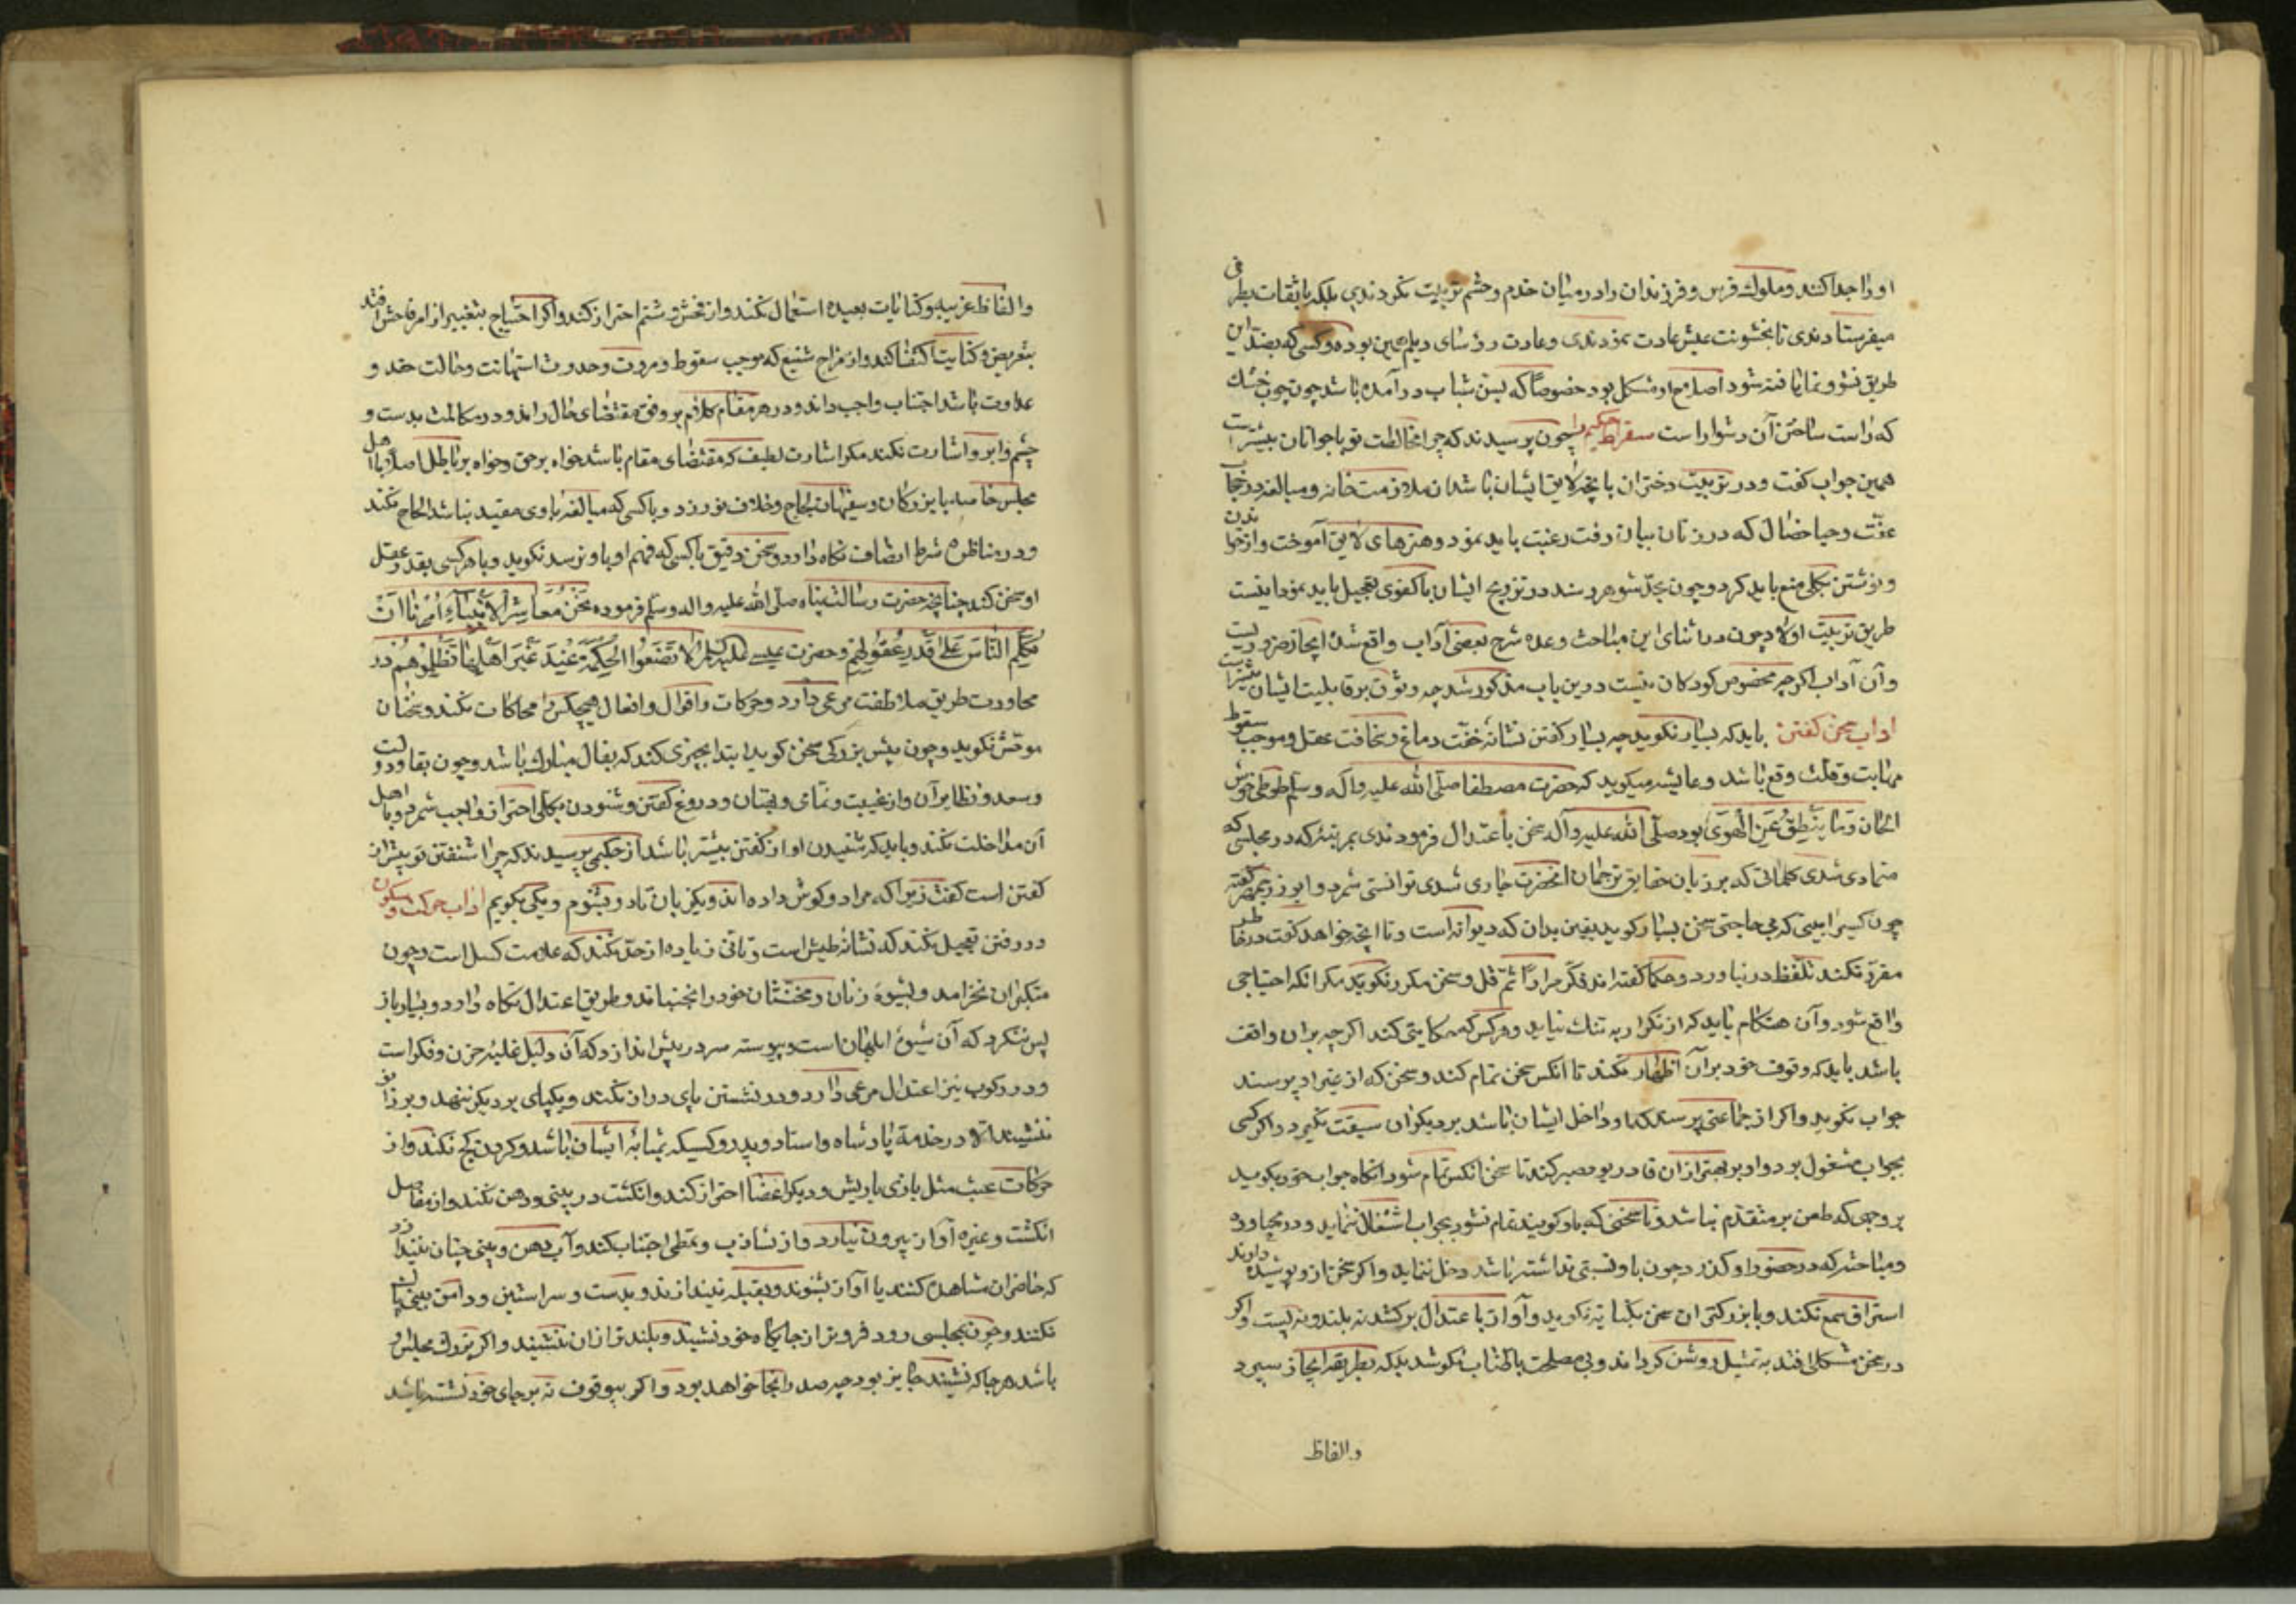 او را جدا کنند و ملوك فرس و فرزندان را در میان خدم و حشم تربیت نکردندی بلکه با ثقات بطرفی
میفرستادندی تا بخشونت عیش عادت نمودندی و عادت رؤسای دیلم همین بوده و کسی که بضد این
طریق نشو و نما یافته شود اصلاح او مشکل بود خصوصا که بسن شباب در آمده باشد چون چوب خشك
که راست ساختن آن دشوار است سقراط حکیم را چون پرسیدند که چرا مخالطت تو با جوانان بیشتر است
همین جواب کفت و در تربیت دختران بانچه لایق ایشان باشد از ملازمت خانه و مبالغه در حجاب
عفّت و حیا خصال که در زنان بیان رفت رغبت باید نمود و هنرهای لایق آموخت و از خواندن
و نوشتن بکلی منع باید کرد و چون بحدّ شوهر رسند در تزویج ایشان با کفوی تعجیل باید نمود اینست
طریق تربیت اولاد چون در اثنای این مباحث وعده شرح بعضی آداب واقع شده ایجاز ضروریست
و آن آداب اکرچه مخصوص کودکان نیست درین باب مذکور شد چه وثوق بر قابلیت ایشان بیشتر است
اداب سخن کفتن باید که بسیار نکوید چه بسیار کفتن نشانه خفّت دماغ و سخافت عقل و موجب سقوط
مهابت و قلّت وقع باشد و عایشه میکوید که حضرت مصطفا صلّی الله علیه و آله و سلم طوطی خوش
الحان وَمَا يَنْطِقُ عَنِ الْهَوَى بود صلّی الله علیه و آله سخن باعتدال فرمودندی بمرتبه که در مجلسی که
متمادی شدی کلماتی که بر زبان حقایق ترجمان انحضرت جاری شدی توانستی شمرد و ابوزرجمهر کفته
چون کسیرا بینی که بی حاجتی سخن بسیار کوید یقین بدان که دیوانه است و تا انچه خواهد کفت در خاطر
مقرر نکند تلفّظ در نیاورد و حکما کفته اند فکّر مرارًا ثمّ قل و سخن مکرر نکوید مکر انکه احتیاجی
واقع شود و آن هنکام باید که از تکرار به تنك نیاید و هرکس که حکایتی کند اکرچه بران واقف
باشد باید که وقوف خود بر آن اظهار نکند تا انکس سخن تمام کند و سخن که از غیر او پرسند
جواب نکوید و اکر از جماعتی پرسند که او داخل ایشان باشد بر دیکران سبقت نکیرد و اکر کسی
بجواب مشغول بود و او بر بهتر از ان قادر بود صبر کند تا سخن انکس تمام شود انکاه جواب خود بکوید
بر وجهی که طعن بر متقدّم نباشد و تا سخنی که با و کویند تمام نشود بجواب اشتغال ننماید و در محاوره
و مباحثه که در حضور او کذرد چون با و نسبتی نداشته باشد دخل ننماید و اکر سخن از و پوشیده دارند
استراق سمع نکند و با بزرکتر ان سخن بکنایه نکوید و آواز باعتدال برکشد نه بلند و نه پست و اکر
در سخن مشکلی افتد به تمثیل روشن کرداند و بی مصلحت باطناب نکوشد بلکه بطریق ایجاز سپرد
و الفاظ
و الفاظ غریبه و کنایات بعیده استعمال نکند و از فحش و شتم احتراز کند و اکر احتیاج بتعبیر از امر فاحش افتد
بتعریض و کنایت اکتفا کند و از مزاح شنیع که موجب سقوط و مروت و حدوث استهانت و حالت حقد و
عداوت باشد اجتناب واجب داند و در هر مقام کلام بر وفق مقتضای حال راند و در مکالمت بدست و
چشم و ابرو اشارت نکند مکر اشارت لطیف که مقتضای مقام باشد خواه بر حق و خواه بر باطل اصلا با اهل
مجلس خاصه با بزرکان و سفیهان لجاج و خلاف نورزد و با کسی که مبالغه با وی مفید نباشد الحاح نکند
و در مناظره شرط انصاف نکاه دارد و سخن دقیق با کسی که فهم او با و نرسد نکوید و با هر کسی بقدر عقل
او سخن کند چنانچه حضرت رسالت پناه صلّی الله علیه و آله و سلّم فرموده نَحْنُ مُعَاشِرَ الْاَنْبِيَاءِ اُمِرْنَا اَنْ
نُكَلِّمَ النَّاسَ عَلَى قَدْرِ عُقُولِهِمْ و حضرت عیسی علیه السلام لَا تَضَعُوا الْحِكْمَةَ عِنْدَ غَيْرِ اَهْلِهَا فَتَظْلِمُوهُمْ در
محاورت طریق ملاطفت مرعی دارد و حرکات و اقوال و افعال هیچکس را محاکات نکند و سخنان
موحش نکوید و چون پیش بزرکی سخن کوید ابتدا بچیزی کند که بفال مبارك باشد و چون بقا و دولت
و سعد و نظایر آن و از غیبت و نمّامی و بهتان و دروغ کفتن و شنودن بکلی احتراز واجب شمرد و با اهل
آن مداخلت نکند و باید که شنیدن او از کفتن بیشتر باشد از حکیمی پرسیدند که چرا شنفتن تو بیش از
کفتن است کفت زیرا که مرا دو کوش داده اند و یکزبان تا دو بشنوم و یکی بکویم اداب حرکت و سکون
در رفتن تعجیل نکند که نشانه طیش است و تانّی زیاده از حدّ نکند که علامت کسل است و چون
متکبران نخرامد و بشیوه زنان و مخنّثان خود را نجنباند و طریق اعتدال نکاه دارد و بسیار باز
پس ننکرد که آن شیوهٔ ابلهان است و پیوسته سر در پیش اندازد که آن دلیل غلبه حزن و فکر است
و در رکوب نیز اعتدال مرعی دارد و در نشستن پای دراز نکند و یکپای بر دیکر ننهد و بر زانو
ننشیند الا در خدمة پادشاه و استاد و پدر و کسیکه بمثابه ایشان باشد و کردن کج نکند و از
حرکات عبث مثل بازی با ریش و دیکر اعضا احتراز کند و انکشت در بینی و دهن نکند و از مفاصل
انکشت و غیره آواز بیرون نیارد و از تثاوب و تمطّی اجتناب کند و آب دهن و بینی چنان نیندازد
که حاضران مشاهده کنند یا آواز بشنوند و بقبله نیندازند و بدست و سر استین و دامن بینی پاك
نکنند و چون بمجلسی رود فروتر از جایکاه خود نشیند و بلندتر از ان ننشیند و اکر بزرك مجلس او
باشد هرجا که نشیند جایز بود چه صدر انجا خواهد بود و اکر بیوقوف نه بر جای خود نشسته باشد